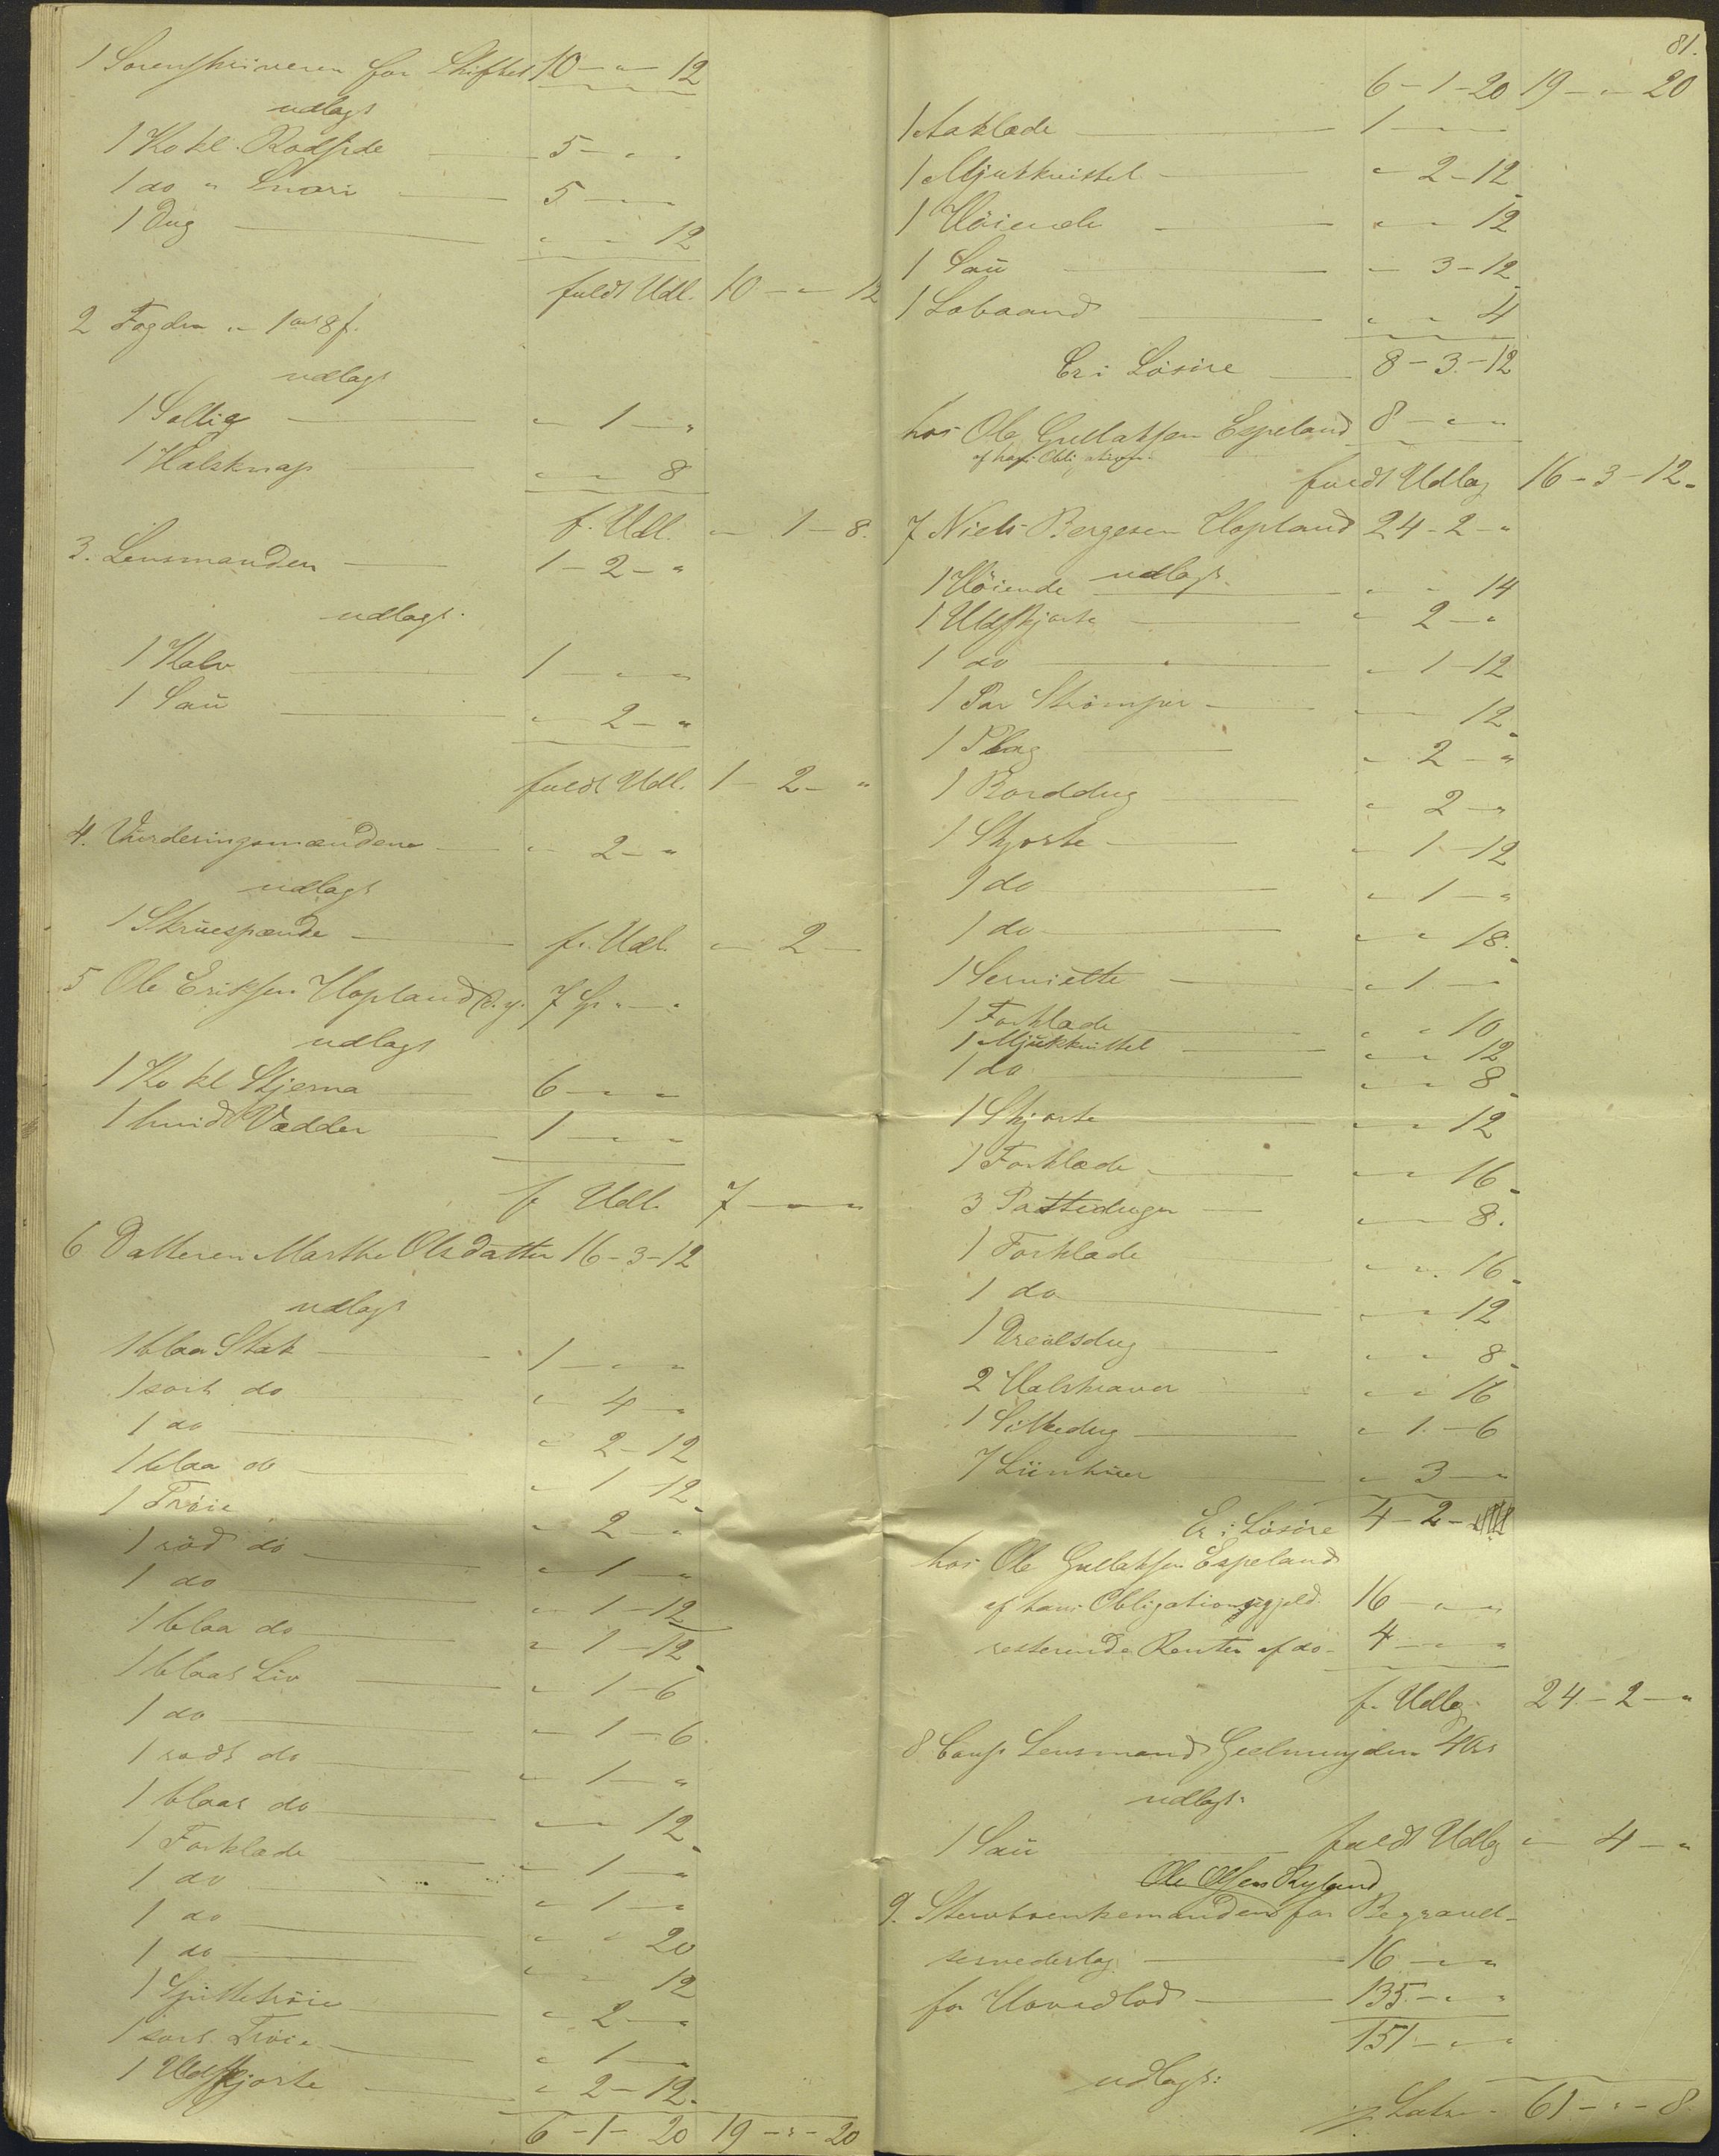 1 Sorenskriveren for Skiftet 10 - " - 12
udlagt
1 Ko kl. Rodside 5 - " - "
1 do " Snari 5 - " - "
1 Dug " - " - 12
fuldt Udl. 10 - " - 12
2 Fogden " - 1 ort 8 f.
udlagt
1 Sællig " - 1 - "
1 Halsknap " - " - 8
f. Udl. " - 1 - 8.
3. Lensmanden 1 - 2 - "
udlagt
1 Kalv 1 - " - "
1 Sau " - 2 - "
fuldt Udl. 1 - 2 - "
4. Vurderingsmændene " - 2 - "
udlagt
1 Skruespænde f. Udl. " - 2 -
5 Ole Eriksen Hopland d.y. 7 Sp " - "
udlagt
1 Ko kl Stjerna 6 - " - "
1 hvid Vædder 1 - " - "
f Udl. 7 - " - "
6 Datteren Marthe Olsdatter 16 - 3 - 12
udlagt
1 blaa Stak 1 - " - "
1 sort do " - 4 - "
1 do " - 2 - 12
1 blaa do " - 1 - 12
1 Trøie " - 2 - "
1 rød do " - 1 - "
1 do " - 1 - 12
1 blaa do " - 1 - 12
1 blaat Liv " - 1 - 6
1 do " - 1 - 6
1 rødt do " - 1 - "
1 blaat do " - " - 12
1 Forklæde " - 1 - "
1 do " - 1 - "
1 do " - " - 20
1 do " - " - 12
1 Spittetrøie " - 2 - "
1 sort Trøie " - 1 - "
1 Uldskjorte " - 2 - 12
6 - 1 - 20 19 - " - 20
81.
6 - 1 - 20 19 - " - 20
1 Aaklæde 1 - " - "
1 Mjukkvittel " - 2 - 12
1 Høiende " - " - 12
1 Sau " - 3 - 12
1 Lobaand " - " - 4
Er i Løsøre 8 - 3 - 12
hos Ole Gullaksen Espeland 8 - " - "
af hans Obligation
fuldt Udlæg 16 - 3 - 12
7 Niels Bergesen Hopland 24 - 2 - "
udlagt
1 Høiende " - " - 14
1 Uldskjorte " - 2 - "
1 do " - 1 - 12
1 Par Strømper " - " - 12
1 Plag " - 2 - "
1 Borddug " - 2 - "
1 Skjorte " - 1 - 12
1 do " - 1 - "
1 do " - " - 18
1 Serviette " - 1 - "
1 Forklæde " - " - 10
1 Mjukkvittel " - " - 12
1 do " - " - 8
1 Skjorte " - " - 12
1 Forklæde " - " - 16
3 Patteduger " - " - 8
1 Forklæde " - " - 16
1 do " - " - 12
1 Dreielsdug " - " - 8
2 Halskraver " - " - 16
1 Silkedug " - 1 - 6
7 Linhuer " - 3 - "
Er i Løsøre 4 - 2 - "
hos Ole Gullaksen Espeland
af hans Obligationsgjeld 16 - " - "
resterende Renter af do 4 - " - "
f. Udlæg 24 - 2 - "
8. Const. Lensmand Geelmuyden 4 Ort
udlagt:
1 Sau fuldt Udlæg " - 4 - "
Ole Olsen Ryland
9. Stervboenkemanden for Begravel-
sesvederlag 16 - " - "
for Hovedlod 135 - " - "
151 - " - "
udlagt:
Latus 61 - " - 8